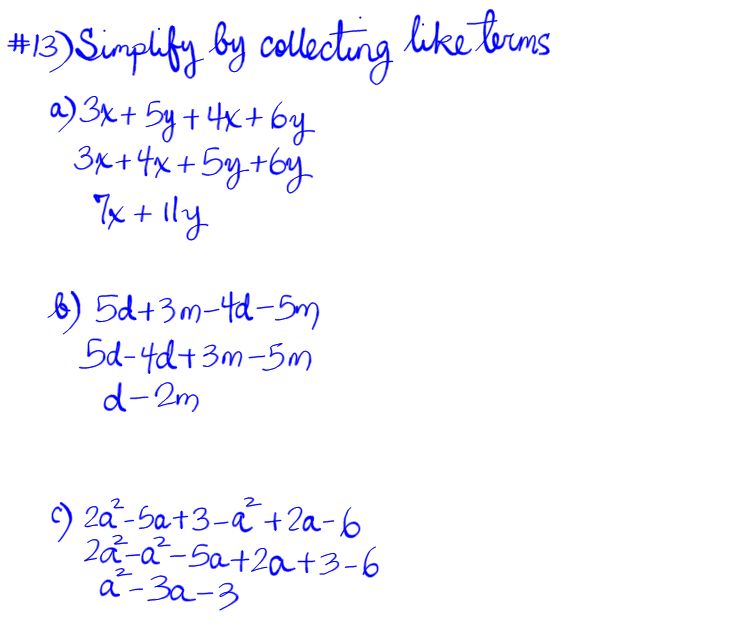 #13) Simplify by collecting like terms
a) 3x + 5y + 4x + 6y
3x + 4x + 5y + 6y
7x + 11y
b) 5d + 3m - 4d - 5m
5d - 4d + 3m - 5m
d - 2m
c) 2a² - 5a + 3 - a² + 2a - 6
2a² - a² - 5a + 2a + 3 - 6
a² - 3a - 3